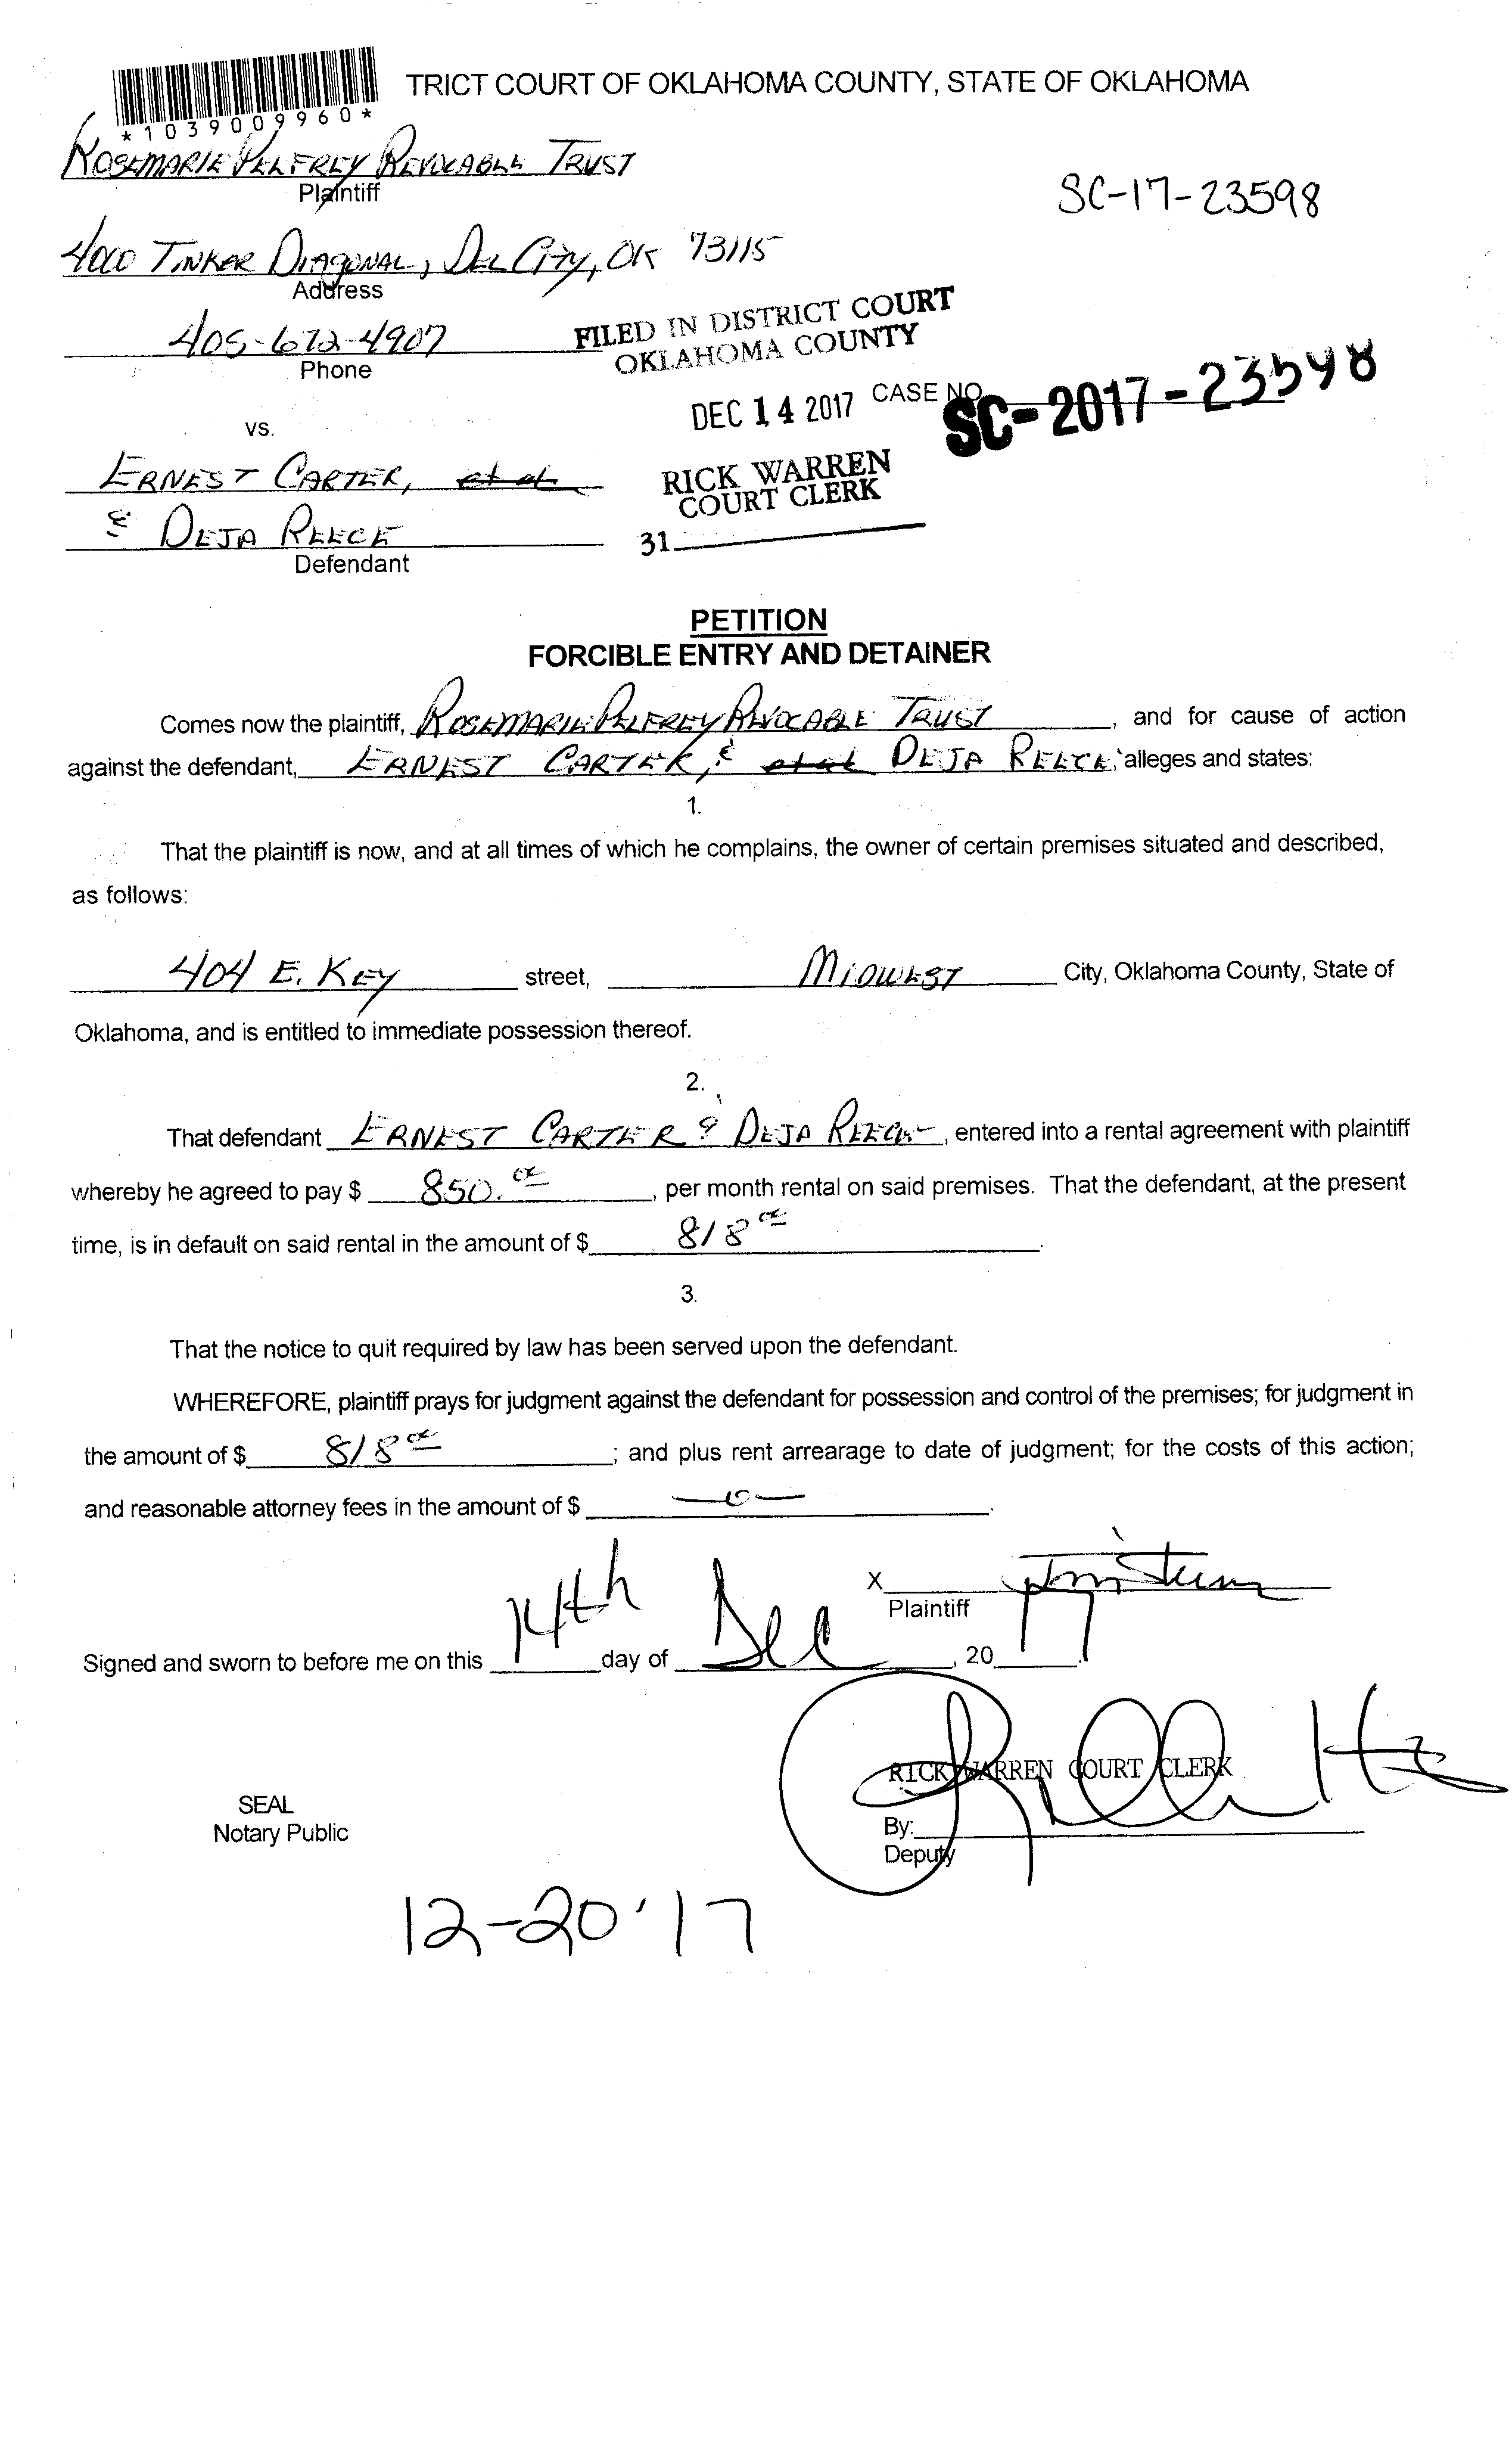 TRICT COURT OF OKLAHOMA COUNTY, STATE OF OKLAHOMA
*1039009960*
ROSEMARIE PELFREY REVOCABLE TRUST
Plaintiff
SC-17-23598
4000 TINKER DIAGONAL, DEL CITY, OK 73115
Address
405-672-4907
Phone
FILED IN DISTRICT COURT
OKLAHOMA COUNTY
DEC 14 2017 CASE NO. SC-2017-23598
vs.
RICK WARREN
COURT CLERK
31
ERNEST CARTER, et al
& DEJA REECE
Defendant
PETITION
FORCIBLE ENTRY AND DETAINER
Comes now the plaintiff, ROSEMARIE PELFREY REVOCABLE TRUST, and for cause of action
against the defendant, ERNEST CARTER, & et al DEJA REECE, alleges and states:
1.
That the plaintiff is now, and at all times of which he complains, the owner of certain premises situated and described,
as follows:
404 E. KEY street, MIDWEST City, Oklahoma County, State of
Oklahoma, and is entitled to immediate possession thereof.
2.
That defendant ERNEST CARTER & DEJA REECE, entered into a rental agreement with plaintiff
whereby he agreed to pay $ 850.00, per month rental on said premises. That the defendant, at the present
time, is in default on said rental in the amount of $ 818 00.
3.
That the notice to quit required by law has been served upon the defendant.
WHEREFORE, plaintiff prays for judgment against the defendant for possession and control of the premises; for judgment in
the amount of $ 818 00; and plus rent arrearage to date of judgment; for the costs of this action;
and reasonable attorney fees in the amount of $ -0-.
X
Plaintiff
Signed and sworn to before me on this 14th day of Dec, 2017.
RICK WARREN COURT CLERK
SEAL
Notary Public
By:
Deputy
12-20'17